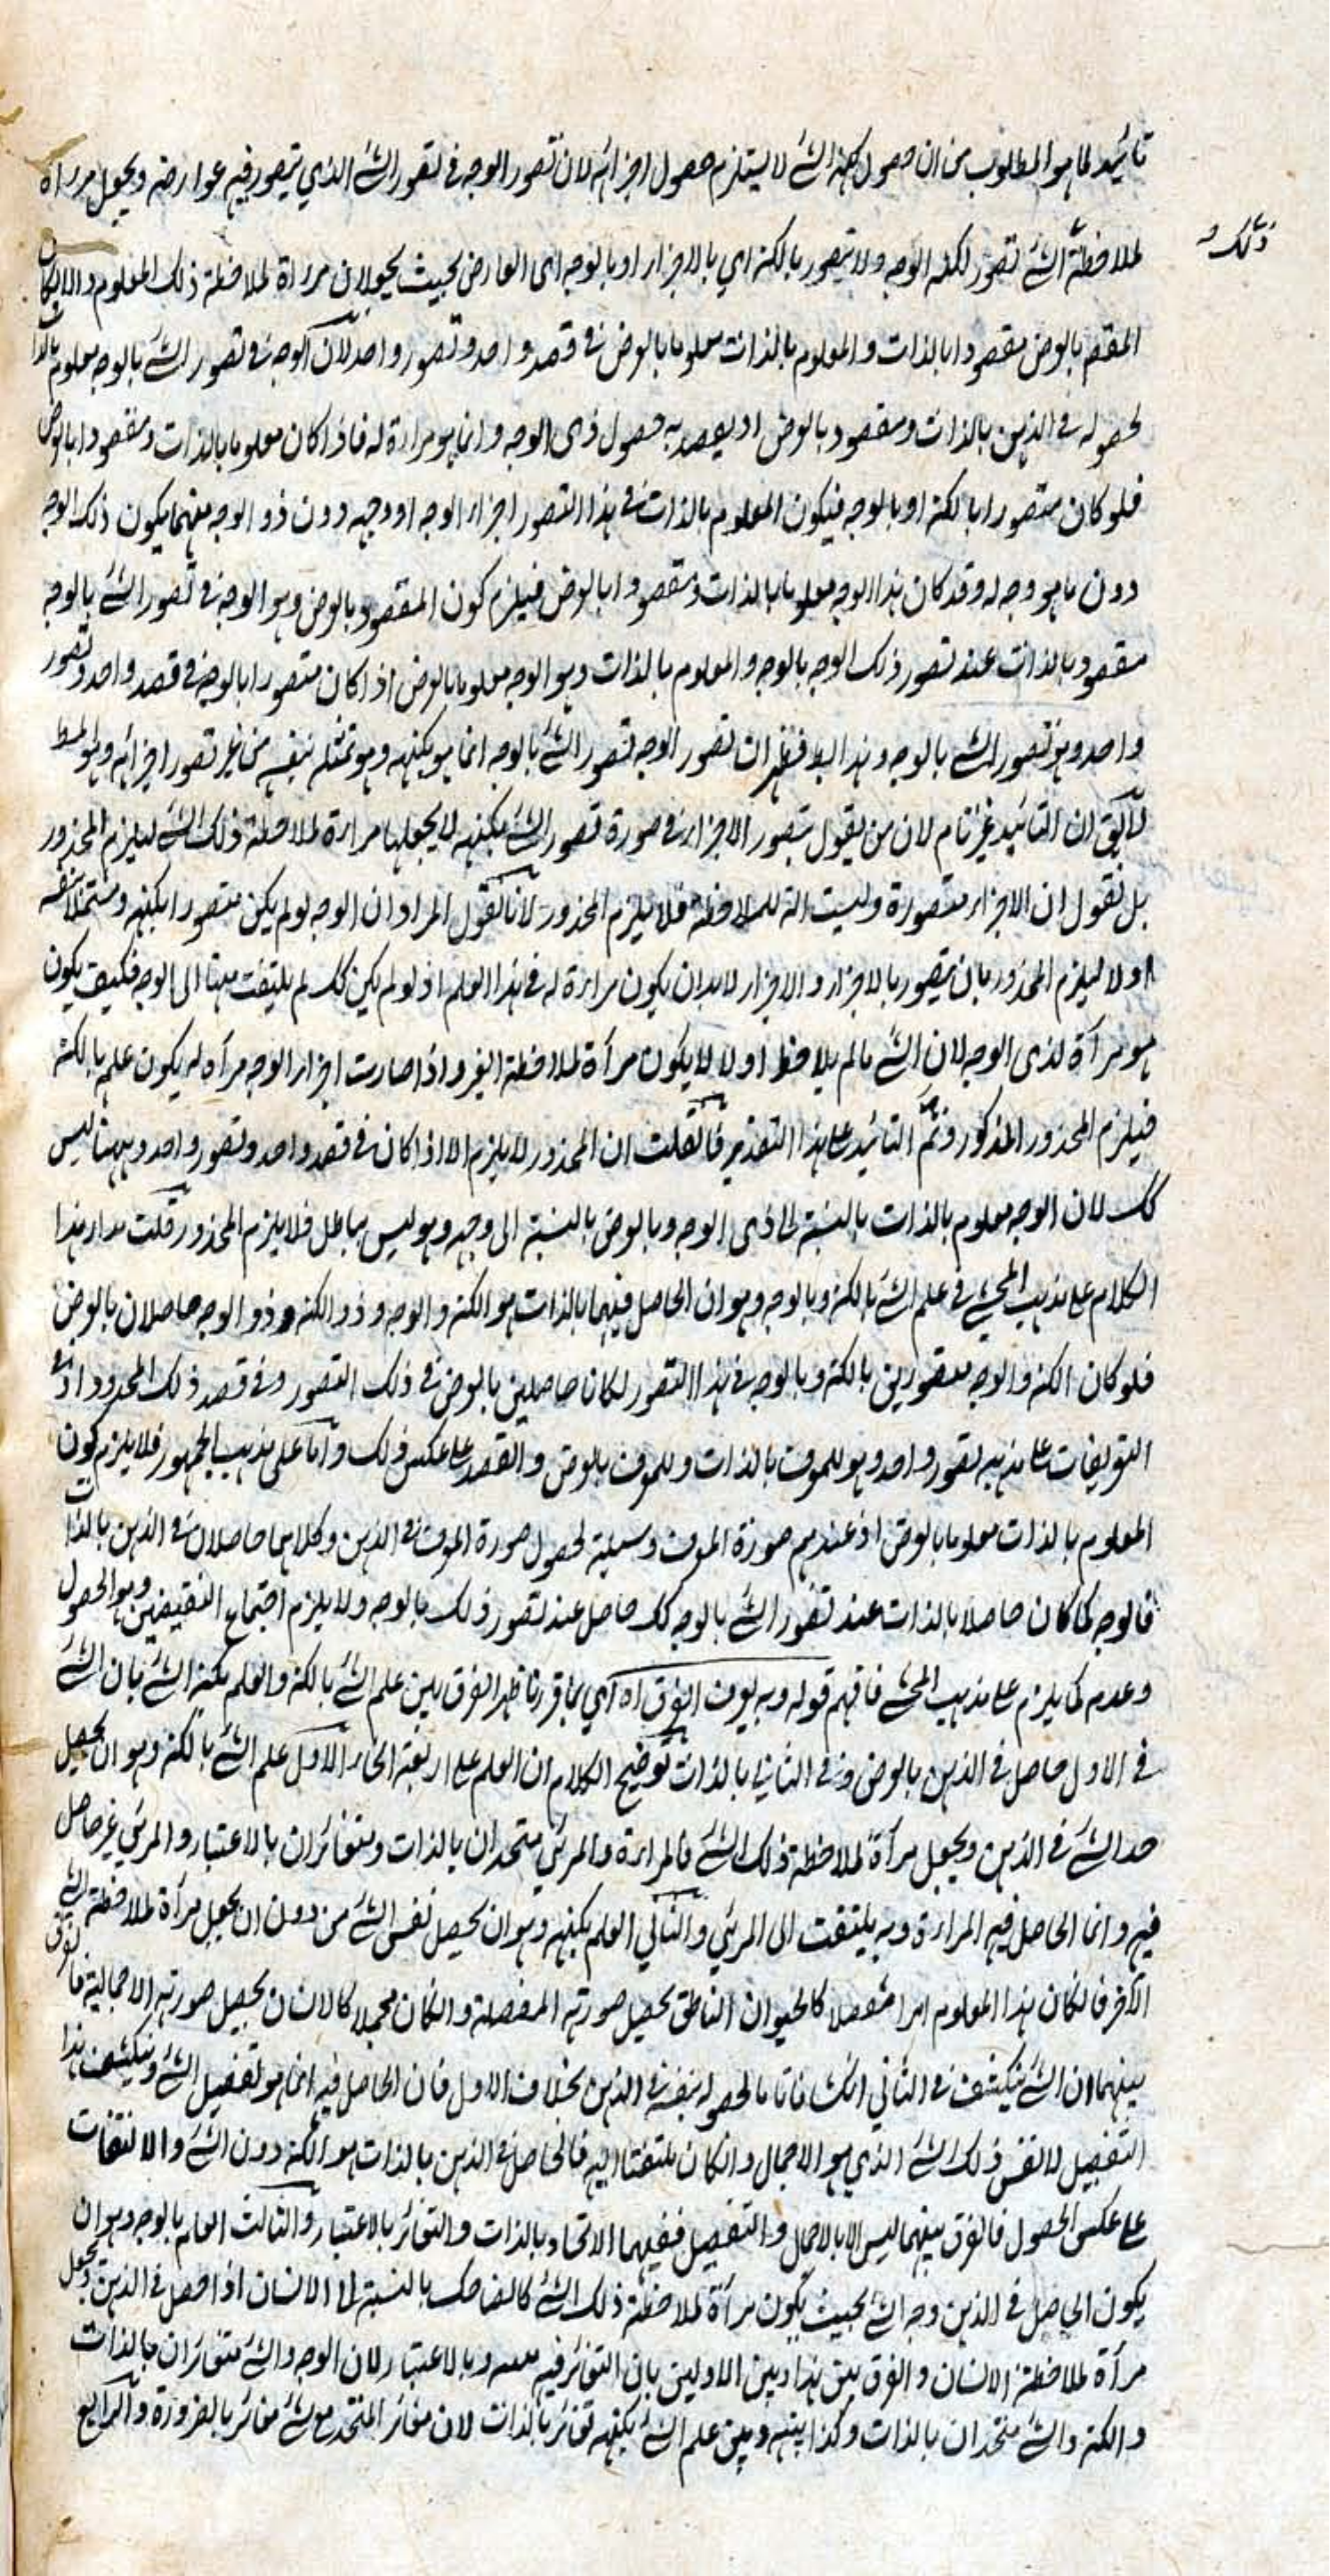 تائيد لما هو المطلوب من ان حصول كنه الشئ لا يستلزم حصول اجزائه لان تصور الوجه فى تصور الشئ الذي يتصور فيه عوارضه ويجعل مراة
ذلك
لملاحظة الشئ تصور لكنه الوجه ولا يتصور بالكنه اي بالاجزاء او بالوجه اى العارض بحيث يجعلان مراة لملاحظة ذلك المعلوم والا لكان
المقصود بالعرض مقصودا بالذات والمعلوم بالذات معلوما بالعرض فى قصد واحد وتصور واحد لان الوجه فى تصور الشئ بالوجه معلوم بالذات
لحصوله فى الذهن بالذات ومقصود بالعرض اذ يقصد به حصول ذى الوجه وانما هو مراة له فاذا كان معلوما بالذات ومقصودا بالعرض
فلو كان متصورا بالكنه او بالوجه فيكون المعلوم بالذات فى هذا التصور اجزاء الوجه او وجهه دون ذو الوجه منهما يكون ذلك الوجه
دون ما هو وجه له وقد كان هذا الوجه معلوما بالذات ومقصودا بالعرض فيلزم كون المقصود بالعرض وهو الوجه فى تصور الشئ بالوجه
مقصودا بالذات عند تصور ذلك الوجه بالوجه والمعلوم بالذات وهو الوجه معلوما بالعرض اذا كان متصورا بالوجه فى قصد واحد وتصور
واحد وهو تصور الشئ بالوجه وهذا فظهر ان تصور الوجه لتصور الشئ بالوجه انما هو بكنهه وهو تمثله بنفسه من غير تصور اجزائه
لا يقال ان التائيد غير تام لان من يقول بتصور الاجزاء فى صورة تصور الشئ بكنهه لا يجعلها مراة لملاحظة ذلك الشئ ليلزم المحذور
بل نقول ان الاجزاء متصورة وليست آلة للملاحظة فلا يلزم المحذور لانا نقول المراد ان الوجه لو لم يكن متصورا بكنهه ومتمثلا بنفسه
اولا ليلزم المحذور بان يتصور بالاجزاء والاجزاء لا بد ان يكون مراة له فى هذا العلم اذ لو لم يكن كك لم يلتفت ههنا الى الوجه فكيف يكون
هو مرآة لذى الوجه لان الشئ ما لم يلاحظ اولا لا يكون مرآة لملاحظة الغير واذا صارت اجزاء الوجه مرآة له يكون علم بالكنه
فيلزم المحذور المذكور وتم التائيد على هذا التقدير فان قلت ان المحذور لا يلزم الا اذا كان فى قصد واحد وتصور واحد وههنا ليس
كك لان الوجه معلوم بالذات بالنسبة الى ذى الوجه وبالعرض بالنسبة الى وجهه وهو ليس بباطل فلا يلزم المحذور قلت مدار هذا
الكلام على مذهب المحشى فى علم الشئ بالكنه وبالوجه وهو ان الحاصل فيهما بالذات هو الكنه والوجه وذو الكنه وذو الوجه حاصلان بالعرض
فلو كان الكنه والوجه متصورين بالكنه وبالوجه فى هذا التصور لكانا حاصلين بالعرض فى ذلك التصور وفى قصد ذلك المحدود اذ فى
التعريفات على مذهبه تصور واحد وهو للمعرف بالذات وللمعرف بالعرض والقصد على عكس ذلك واما على مذهب الجمهور فلا يلزم كون
المعلوم بالذات معلوما بالعرض اذ عندهم صورة المعرف وسيلة لحصول صورة المعرف فى الذهن وكلاهما حاصلان فى الذهن بالذات
فالوجه كما كان حاصلا بالذات عند تصور الشئ بالوجه كك حاصل عند تصور ذلك بالوجه ولا يلزم اجتماع النقيضين وهو الحصول
وعدمه كما يلزم على مذهب المحشى فافهم قوله وبه يعرف الفرق اه اي بما قررنا ظهر الفرق بين علم الشئ بالكنه والعلم بكنه الشئ بان الشئ
فى الاول حاصل فى الذهن بالعرض وفى الثاني بالذات توضيح الكلام ان العلم على اربعة انحاء الاول علم الشئ بالكنه وهو ان يحصل
حد الشئ فى الذهن ويجعل مرآة لملاحظة ذلك الشئ فالمراة والمرئي متحدان بالذات ومتغائران بالاعتبار والمرئي غير حاصل
فيه وانما الحاصل فيه المراة وبه يلتفت الى المرئي والثاني العلم بكنهه وهو ان يحصل نفس الشئ من دون ان يجعل مرآة لملاحظة الشئ
الآخر فان كان هذا المعلوم امرا مفصلا كالحيوان الناطق يحصل صورته المفصلة وان كان مجملا كالانسان يحصل صورته الاجمالية فالفرق
بينهما ان الشئ ينكشف فى الثاني انكشافا تاما لحصوله بنفسه فى الذهن بخلاف الاول فان الحاصل فيه انما هو تفصيل الشئ وينكشف هذا
التفصيل لا نفس ذلك الشئ الذي هو الاجمال وان كان ملتفتا اليه فالحاصل فى الذهن بالذات هو الكنه دون الشئ والالتفات
على عكس الحصول فالفرق بينهما ليس الا بالاجمال والتفصيل ففيهما الاتحاد بالذات والتغائر بالاعتبار والثالث العلم بالوجه وهو ان
يكون الحاصل فى الذهن وجه الشئ بحيث يكون مرآة لملاحظة ذلك الشئ كالضاحك بالنسبة الى الانسان اذا حصل فى الذهن وجعل
مرآة لملاحظة الانسان والفرق بين هذا وبين الاولين بان التغائر فيه وبالاعتبار لان الوجه والشئ متغائران بالذات
والكنه والشئ متحدان بالذات وكذا بينه وبين علم الشئ بكنهه تغائر بالذات لان مغائر المتحد مع شئ مغائر بالضرورة والرابع